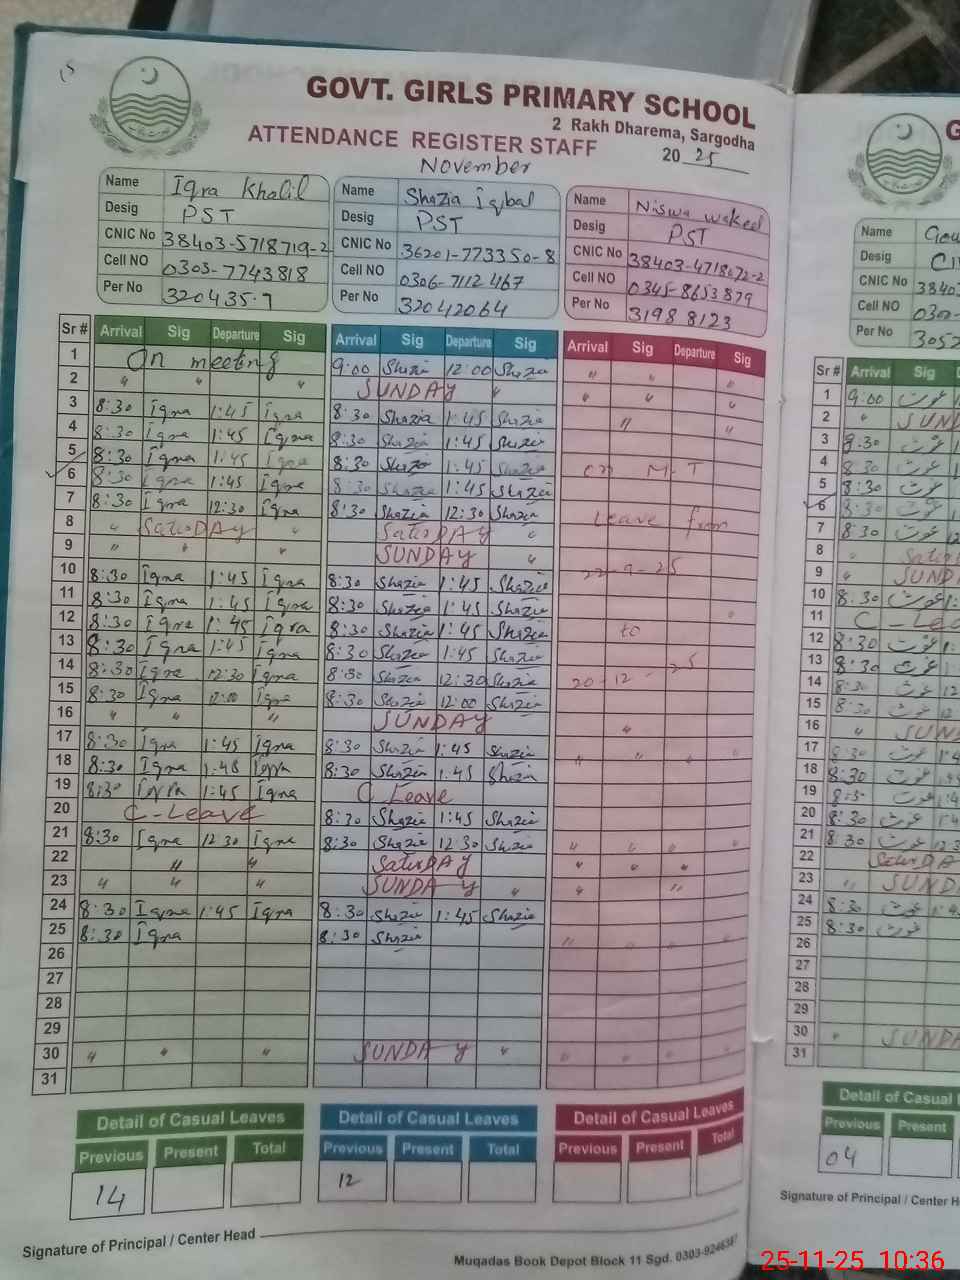 GOVT. GIRLS PRIMARY SCHOOL
2 Rakh Dharema, Sargodha
ATTENDANCE REGISTER STAFF
2025
November
Name Iqra Khalil Name Shazia Iqbal Name Niswa waheed Name
Desig PST Desig PST Desig PST Desig
CNIC No 38403-5718719-2 CNIC No 36201-773350-8 CNIC No 38403-4718672-2 CNIC No 38403
Cell NO 0303-7743818 Cell NO 0306-7112467 Cell NO 0345-8653879 Cell NO
Per No 32043517 Per No 32042064 Per No 31988123 Per No 3052
Sr # Arrival Sig Departure Sig Arrival Sig Departure Sig Arrival Sig Departure Sig Sr # Arrival Sig
1 On meeting 9:00 Shazia 12:00 Shazia " " " 1 9:00 غوث
2 " " " SUNDAY " " " " 2 " SUN
3 8:30 Iqra 1:45 Iqra 8:30 Shazia 1:45 Shazia " " 3 8:30 غوث
4 8:30 Iqra 1:45 Iqra 8:30 Shazia 1:45 Shazia 4 8:30 غوث
5 8:30 Iqra 1:45 Iqra 8:30 Shazia 1:45 Shazia on M-T 5 8:30 غوث
6 8:30 Iqra 1:45 Iqra 8:30 Shazia 1:45 Shazia 6 8:30 غوث
7 8:30 Iqra 12:30 Iqra 8:30 Shazia 12:30 Shazia Leave from 7 8:30 غوث 12
8 " SatuRDAY " SatuRDAY " 8 " Satu
9 " " " SUNDAY " 22-9-25 9 " SUND
10 8:30 Iqra 1:45 Iqra 8:30 Shazia 1:45 Shazia 10 8:30 غوث 1:
11 8:30 Iqra 1:45 Iqra 8:30 Shazia 1:45 Shazia " 11 C-Lea
12 8:30 Iqra 1:45 Iqra 8:30 Shazia 1:45 Shazia to 12 8:30 غوث 1:
13 8:30 Iqra 1:45 Iqra 8:30 Shazia 1:45 Shazia 13 8:30 غوث 1:
14 8:30 Iqra 12:30 Iqra 8:30 Shazia 12:30 Shazia 20-12-25 14 8:30 غوث 12
15 8:30 Iqra 12:00 Iqra 8:30 Shazia 12:00 Shazia 15 8:30 غوث 12
16 " " " SUNDAY " 16 " SUN
17 8:30 Iqra 1:45 Iqra 8:30 Shazia 1:45 Shazia " " " 17 8:30 غوث 1:4
18 8:30 Iqra 1:45 Iqra 8:30 Shazia 1:45 Shazia 18 8:30 غوث
19 8:30 Iqra 1:45 Iqra C Leave 19 غوث 1:4
20 C-Leave 8:30 Shazia 1:45 Shazia 20 8:30 غوث 1:4
21 8:30 Iqra 12:30 Iqra 8:30 Shazia 12:30 Shazia " " " " 21 8:30 غوث 12:3
22 " " SatuRDAY " " " 22 SatuRDA
23 " " " SUNDAY " " " 23 " SUND
24 8:30 Iqra 1:45 Iqra 8:30 Shazia 1:45 Shazia 24 8:30 غوث 1:4
25 8:30 Iqra 8:30 Shazia " " " " 25 8:30 غوث
26 26
27 27
28 28
29 29
30 " " " SUNDAY " " " " " 30 " SUND
31 31
Detail of Casual Leaves Detail of Casual Leaves Detail of Casual Leaves Detail of Casual
Previous Present Total Previous Present Total Previous Present Total Previous Present
14 12 04
Signature of Principal / Center Head Signature of Principal / Center H
Muqadas Book Depot Block 11 Sgd. 0303-9246387
25-11-25 10:36